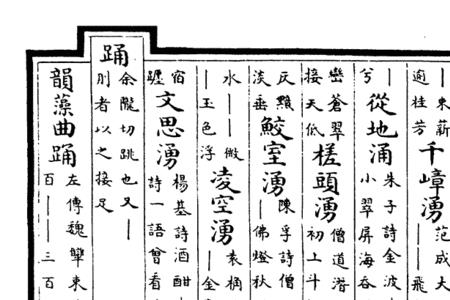 ｜東薪
適桂芳
千嶂湧
范成大
｜｜飛
｜｜
兮
從地涌
朱子詩金波
小翠屏海吞
巒蒼翠
接天低
槎頭湧
僧道潛
初上斗
反照
淡垂
鮫室湧
陳孚詩僧
｜佛燈秋
水｜｜微
｜玉色浮
凌空湧
袁桷
｜｜金
宿
躔
文思湧
楊基詩酒酣
詩一語曾看
踊
余隴切跳也又｜
刖者以之接足
韻藻曲踊
左傳魏犨束
百｜｜三百